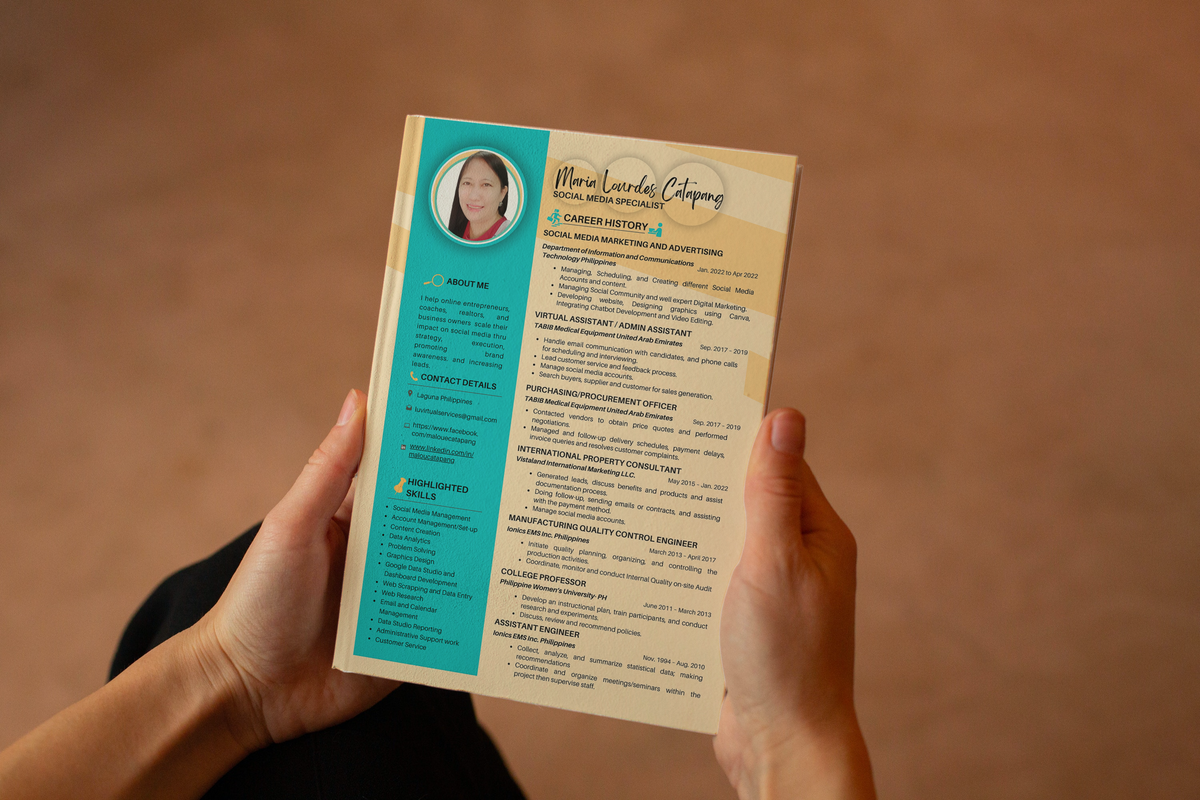 Maria Lourdes Catapang
SOCIAL MEDIA SPECIALIST
ABOUT ME
I help online entrepreneurs,
coaches, realtors, and
business owners scale their
impact on social media thru
strategy, execution,
promoting brand
awareness, and increasing
leads.
CONTACT DETAILS
Laguna Philippines
luvirtualservices@gmail.com
https://www.facebook.
com/malouecatapang
www.linkedin.com/in/
maloucatapang
HIGHLIGHTED
SKILLS
• Social Media Management
• Account Management/Set-up
• Content Creation
• Data Analytics
• Problem Solving
• Graphics Design
• Google Data Studio and
Dashboard Development
• Web Scrapping and Data Entry
• Web Research
• Email and Calendar
Management
• Data Studio Reporting
• Administrative Support work
• Customer Service
CAREER HISTORY
SOCIAL MEDIA MARKETING AND ADVERTISING
Department of Information and Communications
Technology Philippines
Jan. 2022 to Apr 2022
• Managing, Scheduling, and Creating different Social Media
Accounts and content.
• Managing Social Community and well expert Digital Marketing.
• Developing website, Designing graphics using Canva,
Integrating Chatbot Development and Video Editing.
VIRTUAL ASSISTANT / ADMIN ASSISTANT
TABIB Medical Equipment United Arab Emirates
Sep. 2017 - 2019
• Handle email communication with candidates, and phone calls
for scheduling and interviewing.
• Lead customer service and feedback process.
• Manage social media accounts.
• Search buyers, supplier and customer for sales generation.
PURCHASING/PROCUREMENT OFFICER
TABIB Medical Equipment United Arab Emirates
Sep. 2017 - 2019
• Contacted vendors to obtain price quotes and performed
negotiations.
• Managed and follow-up delivery schedules, payment delays,
invoice queries and resolves customer complaints.
INTERNATIONAL PROPERTY CONSULTANT
Vistaland International Marketing LLC.
May 2015 - Jan. 2022
• Generated leads, discuss benefits and products and assist
documentation process.
• Doing follow-up, sending emails or contracts, and assisting
with the payment method.
• Manage social media accounts.
MANUFACTURING QUALITY CONTROL ENGINEER
Ionics EMS Inc. Philippines
March 2013 - April 2017
• Initiate quality planning, organizing, and controlling the
production activities.
• Coordinate, monitor and conduct Internal Quality on-site Audit
COLLEGE PROFESSOR
Philippine Women's University- PH
June 2011 - March 2013
• Develop an instructional plan, train participants, and conduct
research and experiments.
• Discuss, review and recommend policies.
ASSISTANT ENGINEER
Ionics EMS Inc. Philippines
Nov. 1994 - Aug. 2010
• Collect, analyze, and summarize statistical data; making
recommendations
• Coordinate and organize meetings/seminars within the
project then supervise staff.